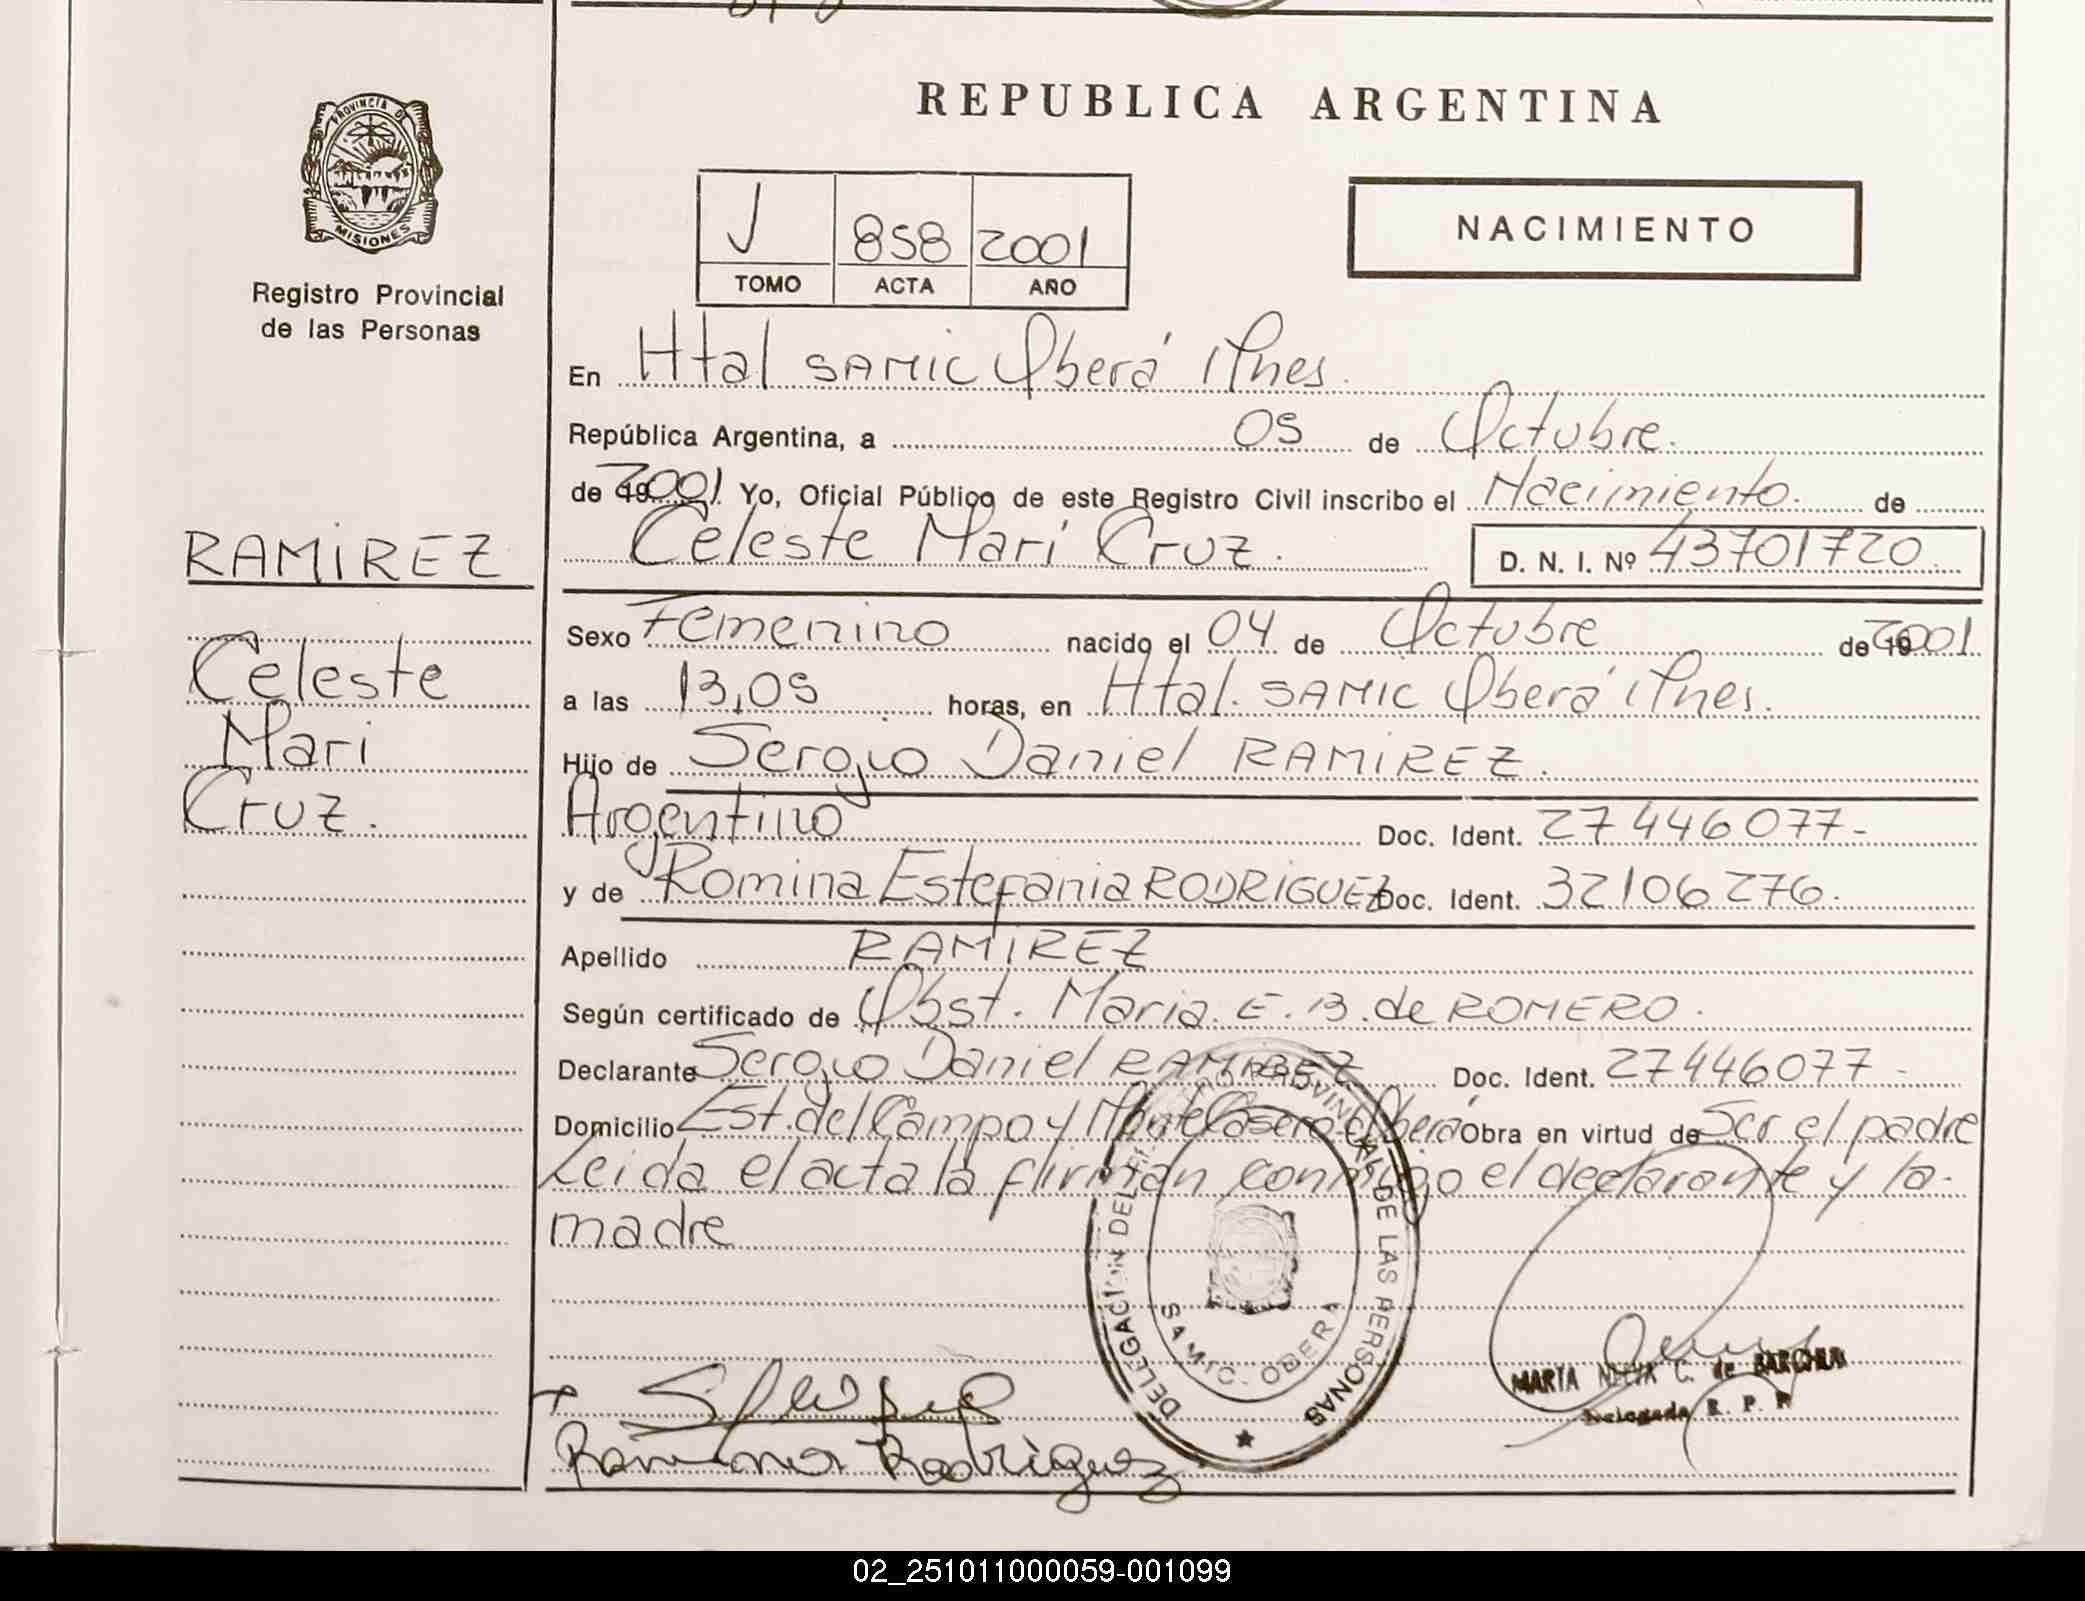 REPUBLICA ARGENTINA
PROVINCIA DE
MISIONES
Registro Provincial
de las Personas
J 858 2001
TOMO ACTA AÑO
NACIMIENTO
En Htal SAMIC Oberá Mnes.
República Argentina, a 05 de Octubre.
de 19 2001 Yo, Oficial Público de este Registro Civil inscribo el Nacimiento. de
Celeste Mari Cruz. D. N. I. Nº 43701720
RAMIREZ
Celeste
Mari
Cruz.
Sexo Femenino nacido el 04 de Octubre de 19 2001
a las 13,05 horas, en Htal. SAMIC Oberá Mnes.
Hijo de Sergio Daniel RAMIREZ.
Argentino Doc. Ident. 27446077-
y de Romina Estefania RODRIGUEZ Doc. Ident. 32106276.
Apellido RAMIREZ
Según certificado de Obst. Maria. E. B. de ROMERO.
Declarante Sergio Daniel RAMIREZ Doc. Ident. 27446077-
Domicilio Est. del Campo y Monte Casero-Oberá Obra en virtud de Ser el padre
Leida el acta la firman conmigo el declarante y la
madre
DELEGACION DEL REGISTRO PROVINCIAL DE LAS PERSONAS
SAMIC. OBERA
MARTA NELIA C. de
Delegada R. P. P
Rodriguez
02_251011000059-001099